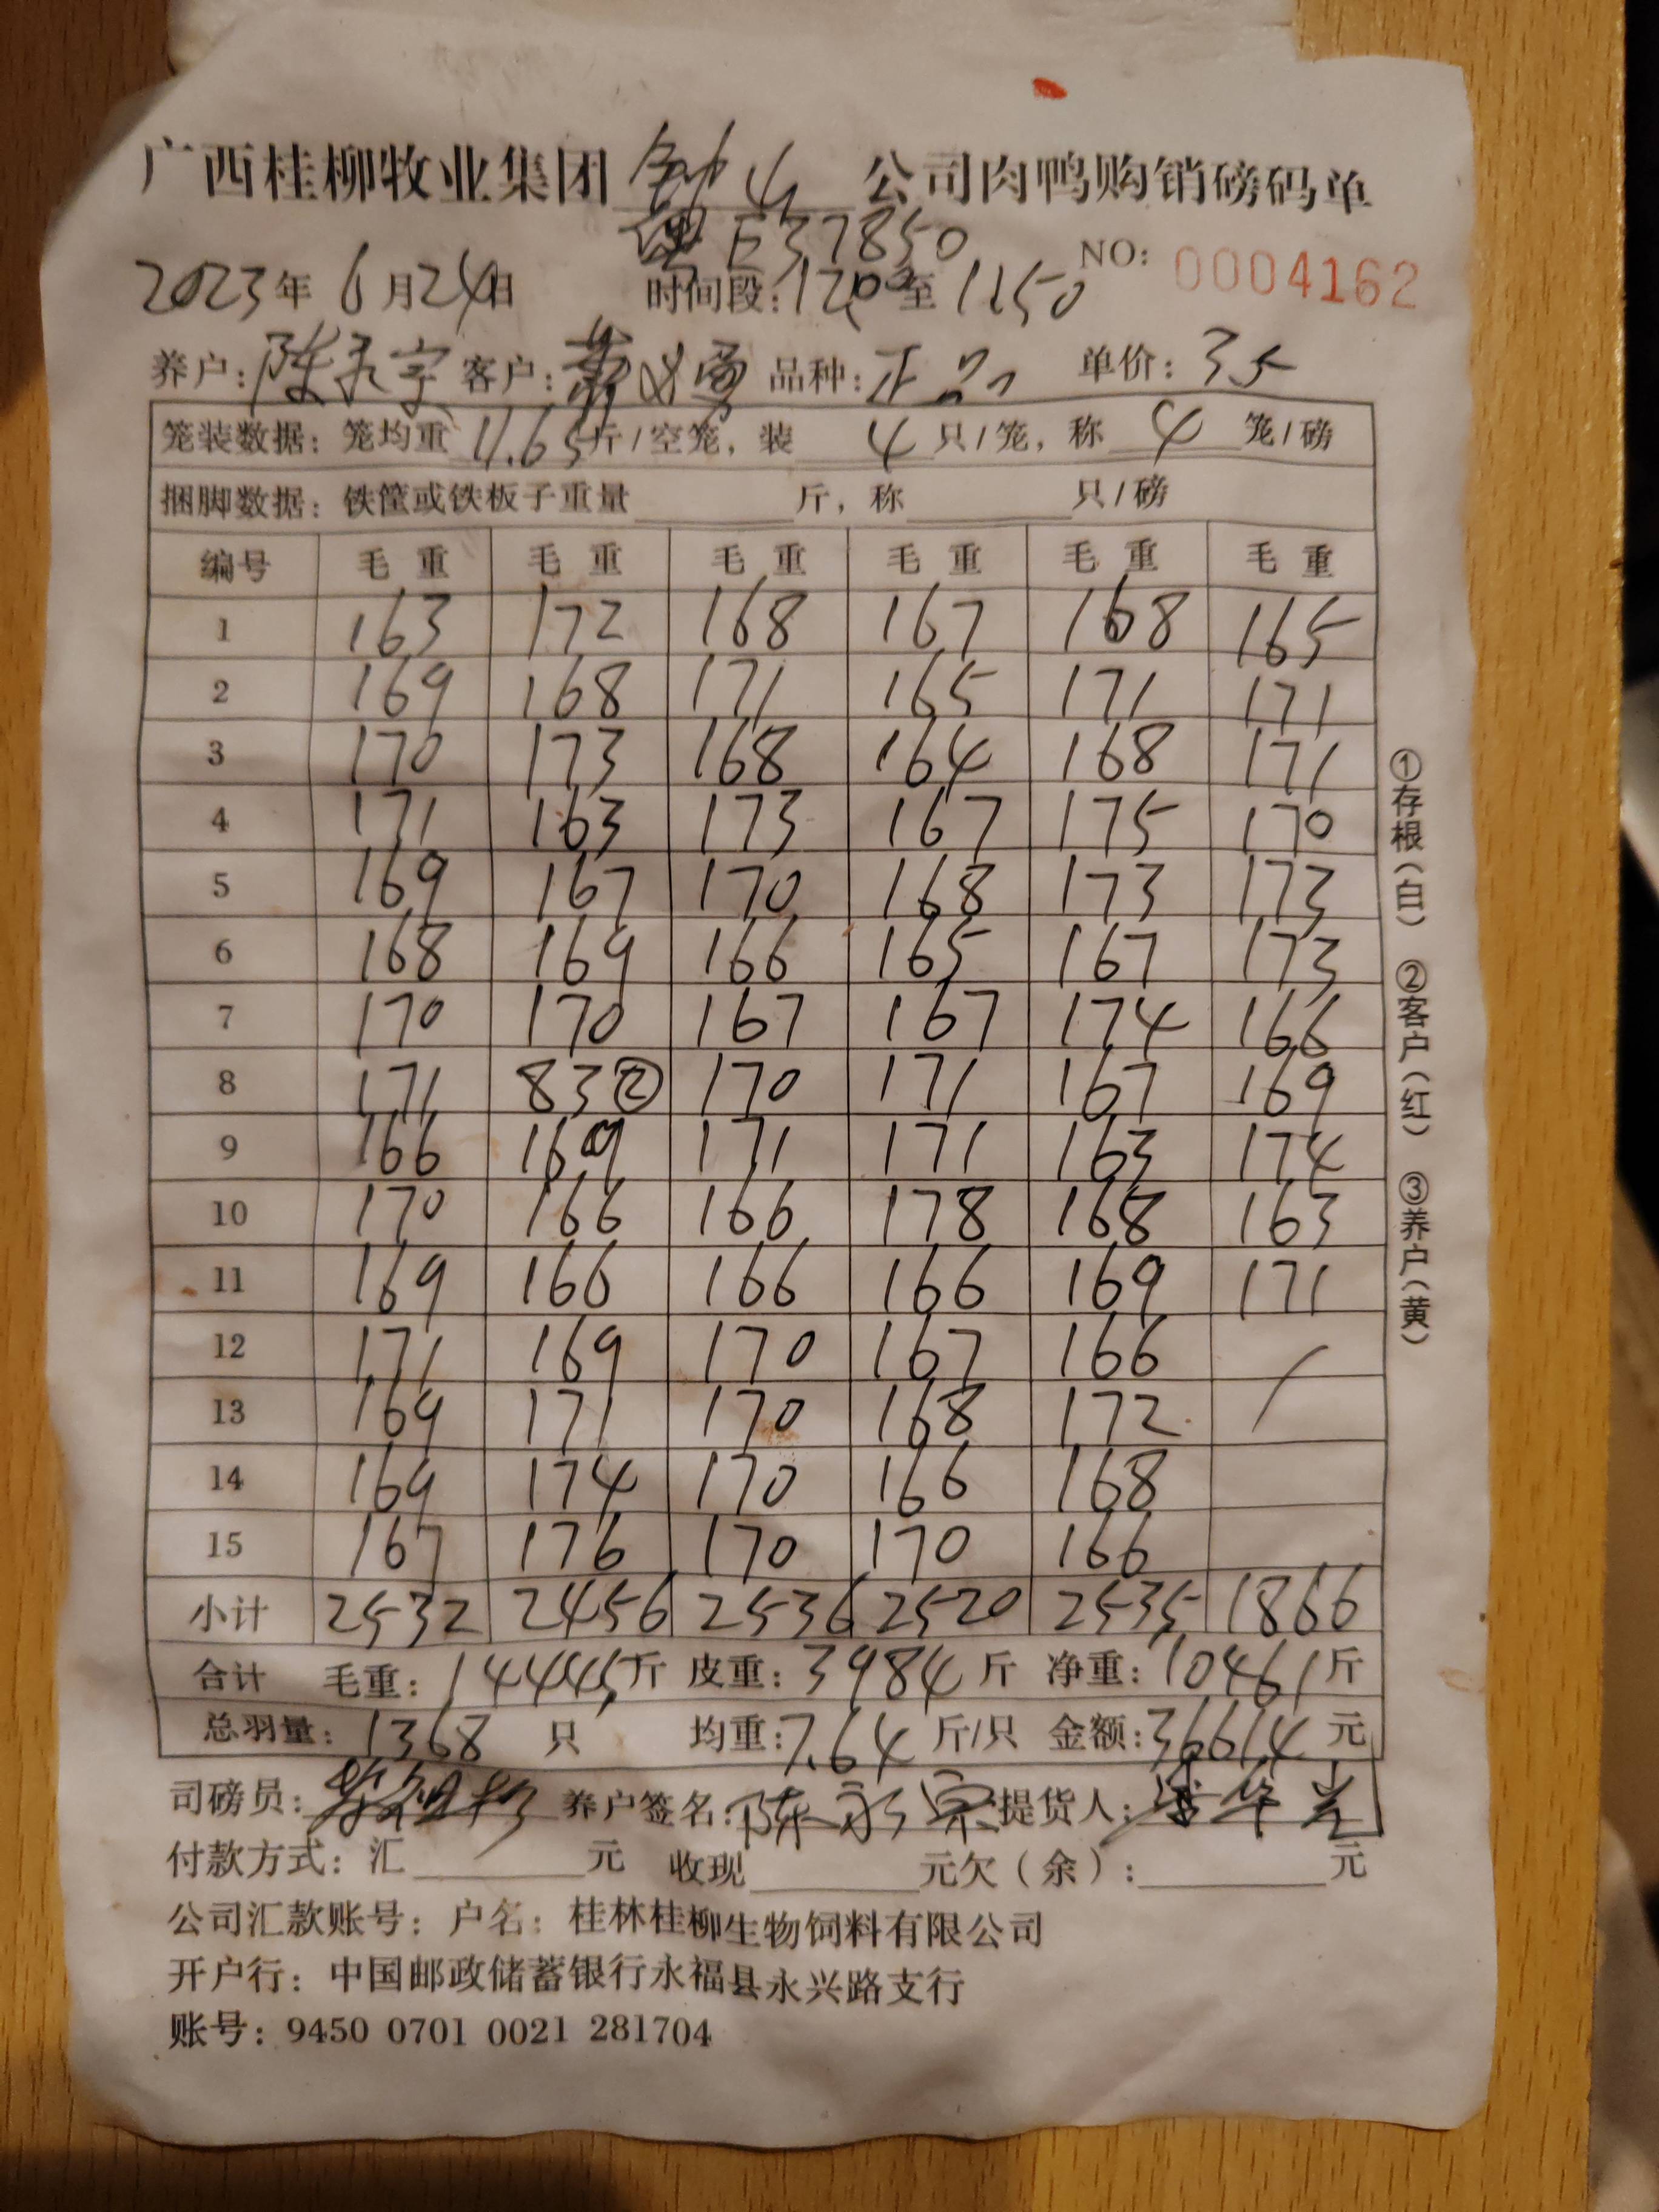 广西桂柳牧业集团 钟山 公司肉鸭购销磅码单
E37850
NO: 0004162
2023年 6月24日 时间段: 至1150
养户: 陈 客户: 品种: 正品 单价: 35
笼装数据: 笼均重 11.65 斤/空笼, 装 4 只/笼, 称 4 笼/磅
捆脚数据: 铁筐或铁板子重量 斤, 称 只/磅
编号 毛重 毛重 毛重 毛重 毛重 毛重
1 163 172 168 167 168 165
2 169 168 171 165 171 171
3 170 173 168 164 168 171
4 171 163 173 167 175 170
5 169 167 170 168 173 173
6 168 169 166 165 167 173
7 170 170 167 167 174 166
8 171 83② 170 171 167 169
9 166 169 171 171 163 174
10 170 166 166 178 168 163
11 169 166 166 166 169 171
12 171 169 170 167 166
13 169 171 170 168 172
14 169 174 170 166 168
15 167 176 170 170 166
小计 2532 2456 2536 2520 2535 1866
合计 毛重: 14445斤 皮重: 3984 斤 净重: 10461斤
总羽量: 1368 只 均重: 7.64 斤/只 金额: 36614 元
司磅员: 养户签名: 陈永 提货人:
付款方式: 汇 元 收现 元欠(余): 元
公司汇款账号: 户名: 桂林桂柳生物饲料有限公司
开户行: 中国邮政储蓄银行永福县永兴路支行
账号: 9450 0701 0021 281704
①存根(白) ②客户(红) ③养户(黄)